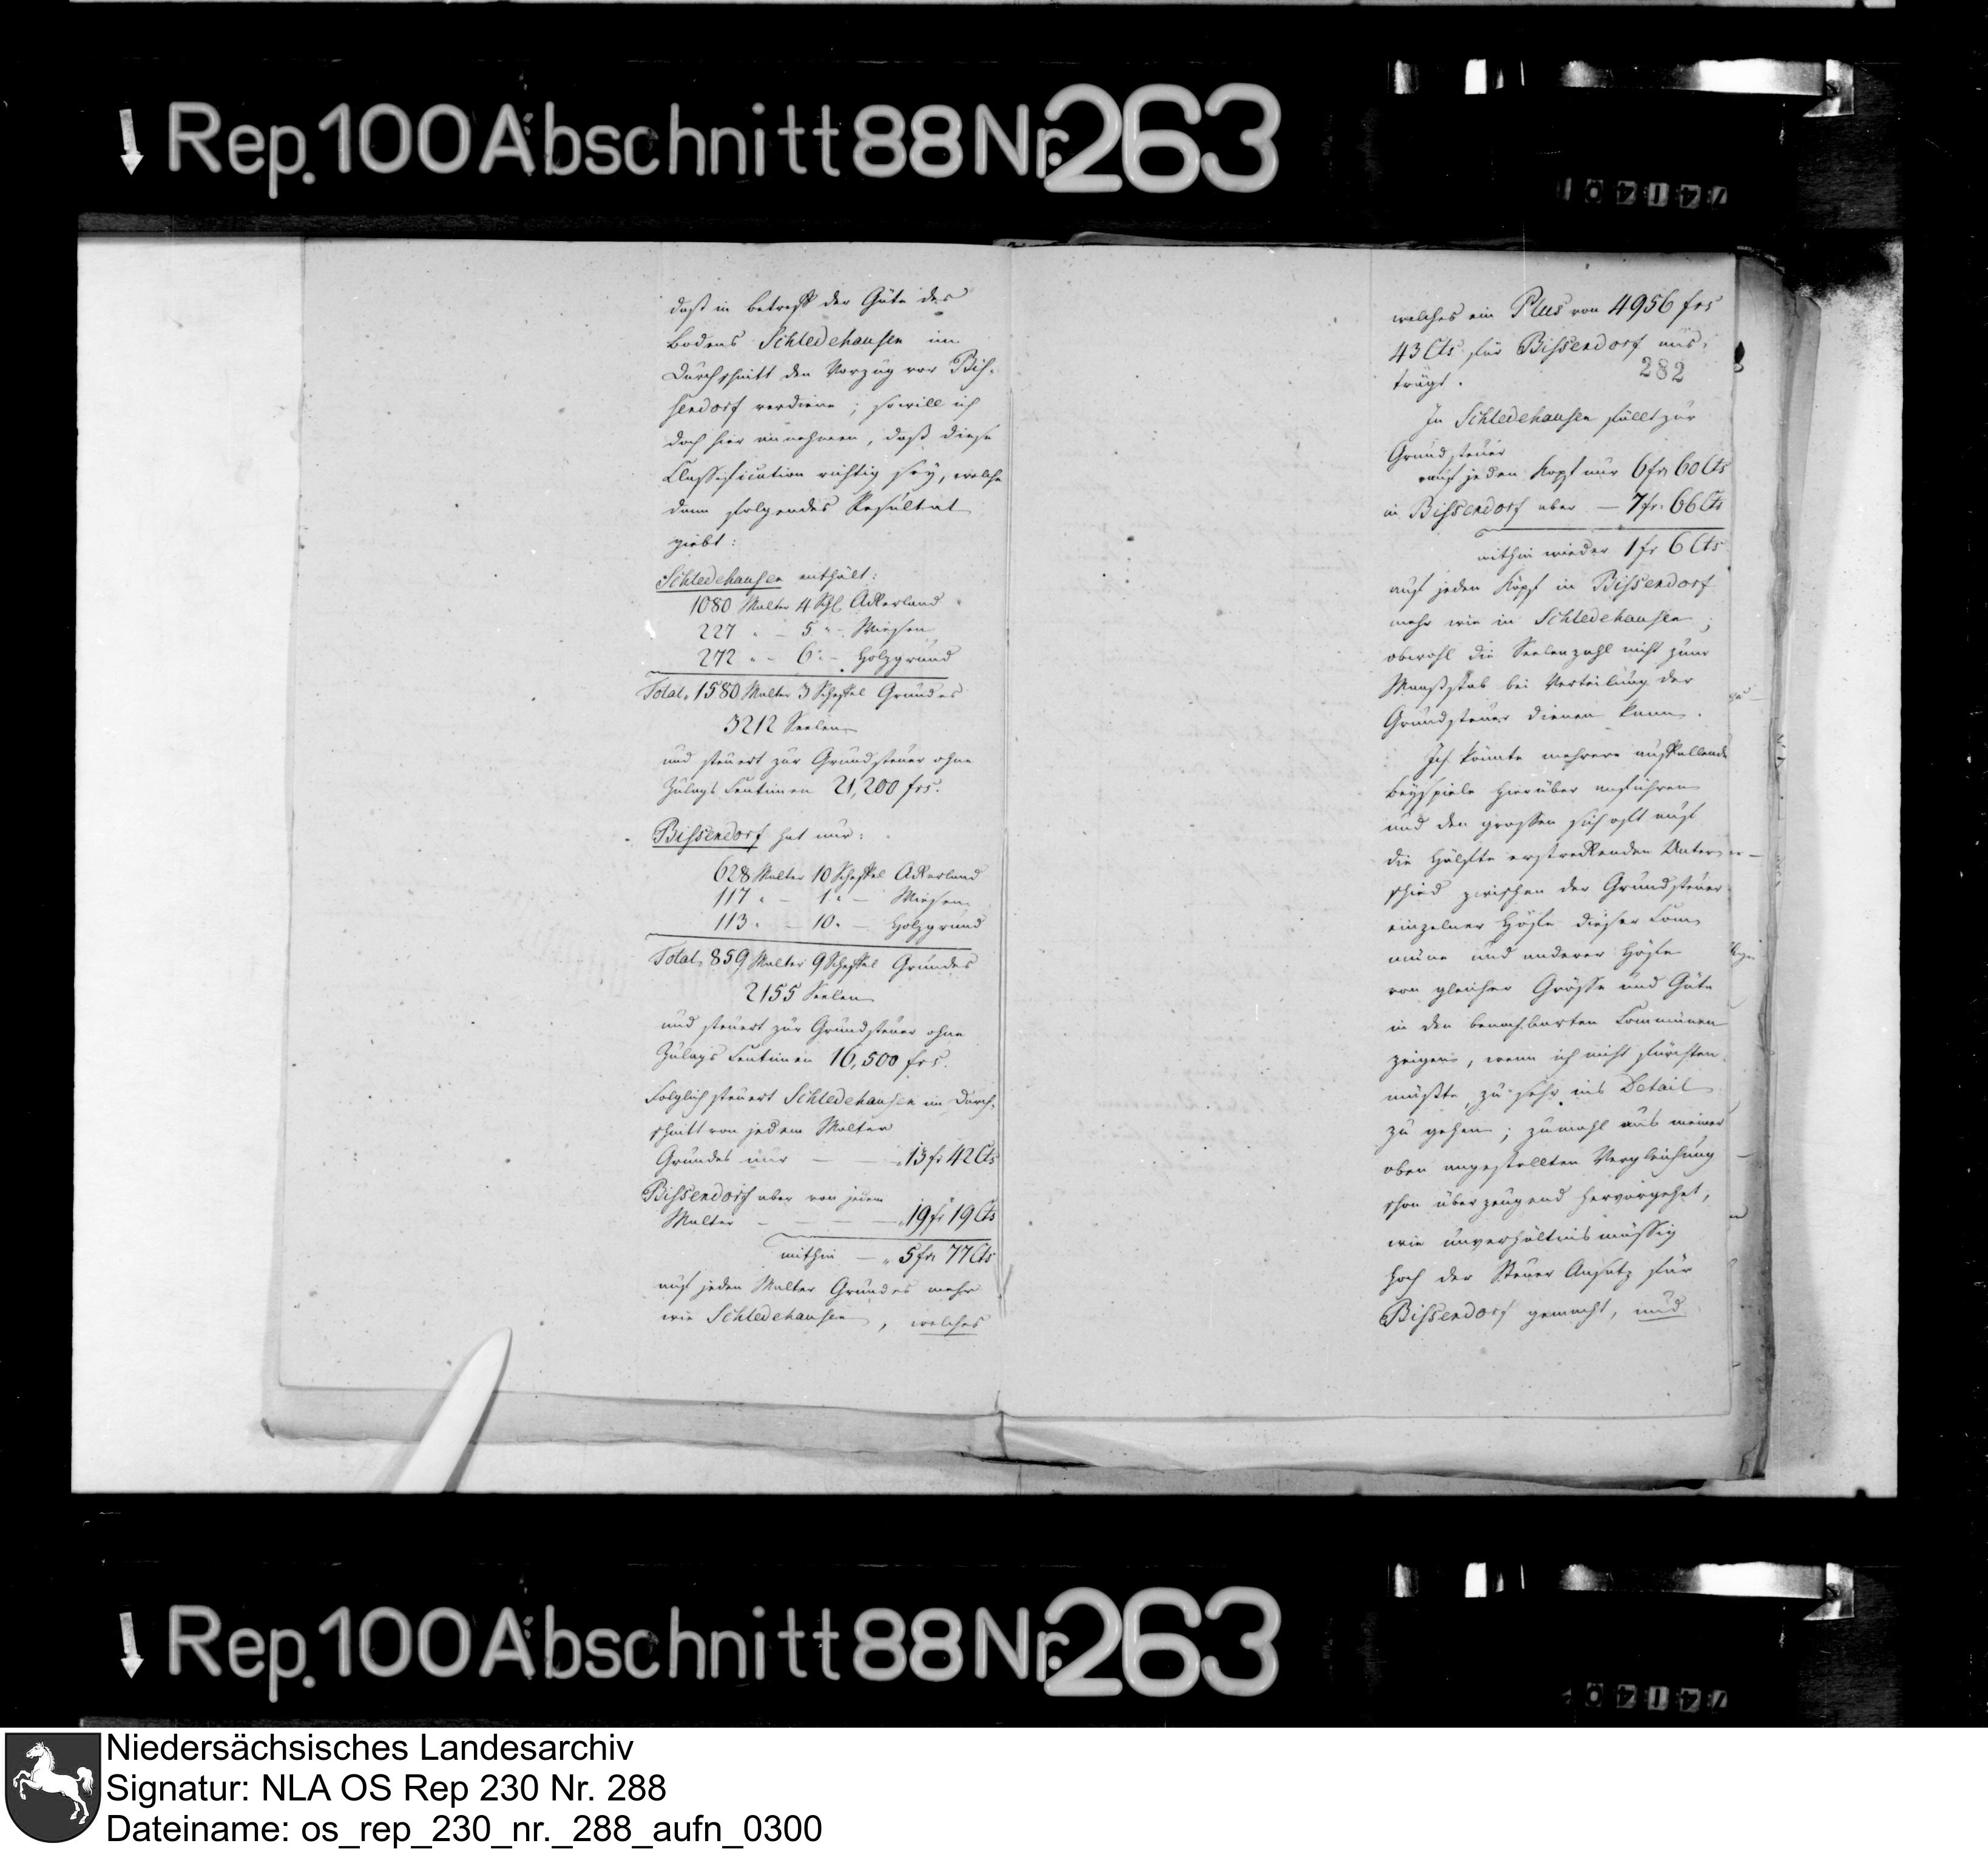 Rep. 100 Abschnitt 88 Nr. 263
daß in betreff der Güte des
Bodens Schledehausen im
Durchschnitt den Vorzug vor Bis-
sendorf verdiene; so will ich
doch hier annehmen, daß diese
Classification richtig sey, welche
dann folgendes Resultat
giebt:
Schledehausen enthält:
1080 Malter 4 Schfl Ackerland
227 " - 5 " - Wiesen
272 " - 6 " - Holzgrund
Total, 1580 Malter 3 Scheffel Grundes
3212 Seelen
und steuert zur Grundsteuer ohne
Zulags Centimen 21,200 frs.
Bissendorf hat nur:
628 Malter 10 Scheffel Ackerland
117 " - 1 " - Wiesen
113 " - 10 " - Holzgrund
Total, 859 Malter 9 Scheffel Grundes
2155 Seelen
und steuert zur Grundsteuer ohne
Zulags Centimen 16,500 frs.
Folglich steuert Schledehausen im Durch-
schnitt von jedem Malter
Grundes nur — — 13 fr 42 Cts
Bissendorf aber von jedem
Malter — — — — 19 fr 19 Cts
mithin — " 5 frs 77 Cts
auf jeden Malter Grundes mehr
wie Schledehausen, welches
welches ein Plus von 4956 frs
43 Cts für Bissendorf aus-
trägt.
282
In Schledehausen fällt zur
Grundsteuer
auf jeden Kopf nur 6 frs 60 Cts
in Bissendorf aber — 7 fr. 66 Cts
mithin wieder 1 fr 6 Cts
auf jeden Kopf in Bissendorf
mehr wie in Schledehausen;
obwohl die Seelenzahl nicht zum
Maaßstab bei Verteilung der
Grundsteuer dienen kann.
Ich könnte mehrere auffallende
Beyspiele hierüber anführen
und den grossen sich oft auf
die Hälfte erstreckenden Unter-
schied zwischen der Grundsteuer
einzelner Höfe dieser Com
mune und anderer Höfe
von gleicher Grösse und Güte
in den benachbarten Communen
zeigen, wenn ich nicht fürchten
müßte, zu sehr ins Detail
zu gehen; zumahl aus meiner
oben angestellten Vergleichung
schon überzeugend hervorgehet,
wie unverhältnismässig
hoch der Steuer Ansatz für
Bissendorf gemacht, und
Rep. 100 Abschnitt 88 Nr. 263
Niedersächsisches Landesarchiv
Signatur: NLA OS Rep 230 Nr. 288
Dateiname: os_rep_230_nr._288_aufn_0300